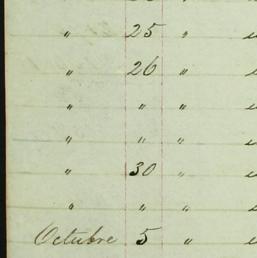 " 25 "
" 26 "
" " "
" " "
" 30 "
" " "
Octubre 5 "